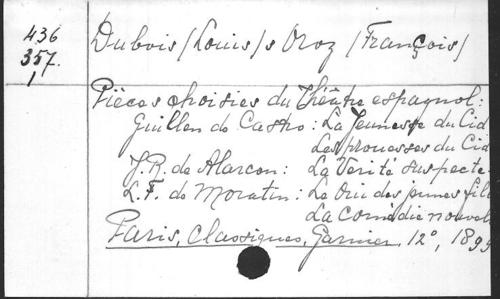 436
357.
1
Dubois (Louis) s Oroz (François)
Pièces choisies du Théâtre espagnol:
Guillen de Castro: La Jeunesse du Cid
Les prouesses du Cid
J. R. de Alarcon: La Verité suspecte
L. F. de Moratin: Le oui des jeunes fill
La comédie nouvel
Paris, Classiques, Garnier, 12°, 189